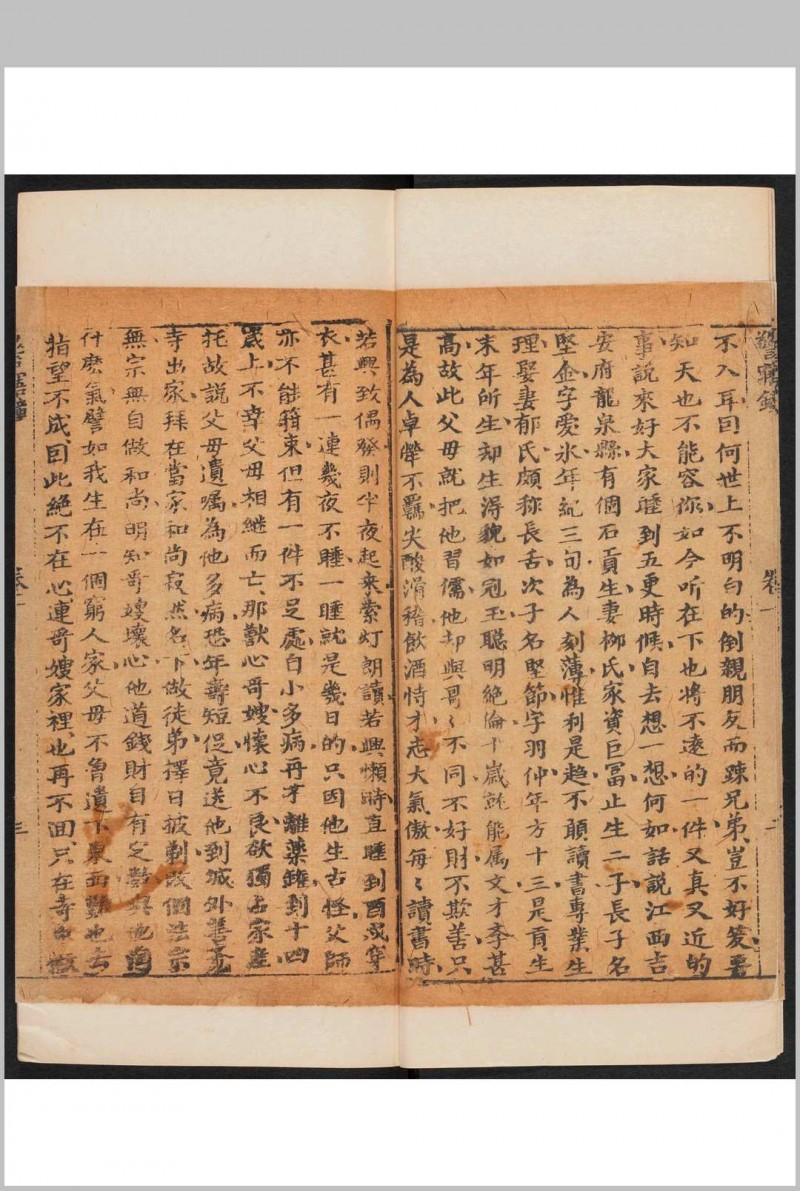 警寤鐘
卷一
二
不入耳回何世上不明白的倒親朋友而疎兄弟豈不好笑要
知天也不能容你如今听在下也將不遠的一件又真又近的
事說來好大家睡到五更時候自去想一想何如話說江西吉
安府龍泉縣有個石貢生妻柳氏家資巨富止生二子長子名
堅金字愛氷年紀三旬為人刻薄惟利是趋不願讀書專業生
理娶妻郁氏頗称長舌次子名堅節字羽仲年方十三是貢生
末年所生却生得貌如冠玉聰明絶倫十歲就能属文才李甚
高故此父母就把他習儒他却與哥〻不同不好財不欺善只
是為人卓犖不羈尖酸滑稽飲酒恃才志大氣傲每〻讀書時
若興致偶發則半夜起來索灯朗讀若興懶時直睡到酉戌穿
衣甚有一連幾夜不睡一睡就是幾日的只因他生古怪父師
亦不能箝束但有一件不足處自小多病再才離藥鑵到十四
歲上不幸父母相継而亡那獸心哥嫂懐心不良欲獨占家産
托故説父母遺嘱為他多病恐年壽短促竟送他到城外善
寺出家拜在當家和尚寂然名下做徒弟擇日披剃改個法
無宗無自做和尚明知哥嫂壞心他道錢財自有定數與他
什麽氣譬如我生在一個窮人家父母不魯遺下東西也去
指望不成因此絶不在心連哥嫂家裡也再不回只在寺
卷一
三